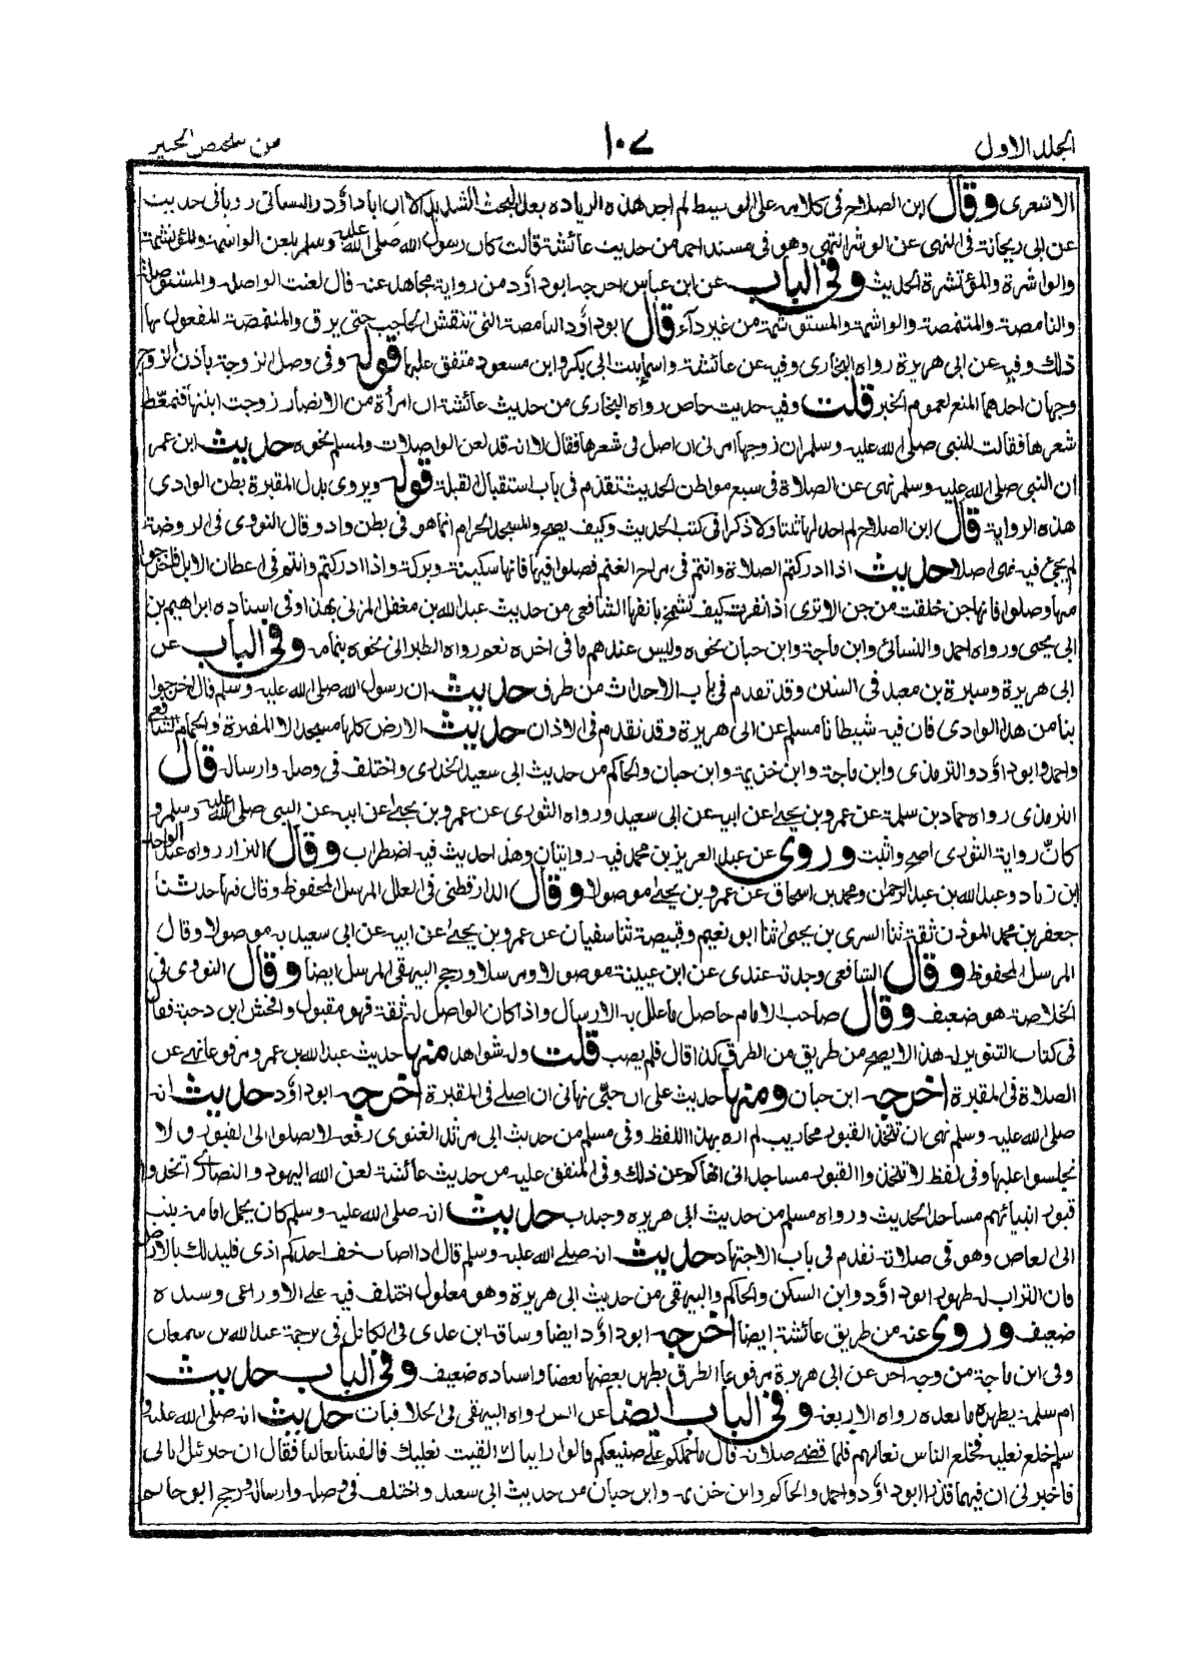 الجلد الاول
١٠٧
من تلخيص الحبير
الاشعرى وقال ابن الصلاح فى كلامه على الوسيط لم اجد هذه الزيادة بعد البحث الشديد الا ان ابا داؤد والنسائى رويا فى حديث
عن ابى ريحانة فى النهى عن الوشر انتهى وهو فى مسند احمد من حديث عائشة قالت كان رسول الله صلى الله عليه وسلم يلعن الواشمة والمؤتشمة
والواشرة والمؤتشرة الحديث وفى الباب عن ابن عباس اخرجه ابو داؤد من رواية مجاهد عنه قال لعنت الواصلة والمستوصلة
والنامصة والمتنمصة والواشمة والمستوشمة من غير دآء قال ابو داؤد النامصة التى تنقش الحاجب حتى يرق والمتنمصة المفعول بها
ذلك وفيه عن ابى هريرة رواه البخارى وفيه عن عائشة واسماء بنت ابى بكر وابن مسعود متفق عليها قوله وفى وصل الزوجة باذن الزوج
وجهان احدهما المنع لعموم الخبر قلت وفيه حديث خاص رواه البخارى من حديث عائشة ان امرأة من الانصار زوجت ابنتها فتمعّط
شعرها فقالت للنبى صلى الله عليه وسلم ان زوجها امرنى ان اصل فى شعرها فقال لا انه قد لعن الواصلات ولمسلم نحوه حديث ابن عمر
ان النبى صلى الله عليه وسلم نهى عن الصلاة فى سبع مواطن الحديث تقدم فى باب استقبال القبلة قوله ويروى بدل المقبرة بطن الوادى
هذه الرواية قال ابن الصلاح لم اجد لها ثبتا ولا ذكرا فى كتب الحديث وكيف يصح والمسجد الحرام انما هو فى بطن واد وقال النووى فى الروضة
لم يجئ فيه نهى اصلا حديث اذا ادركتم الصلاة وانتم فى مراح الغنم فصلوا فيها فانها سكينة وبركة واذا ادركتم وانتم فى اعطان الابل فاخرجوا
منها وصلوا فانها جن خلقت من جن الا ترى اذا نفرت كيف تشمخ بانفها الشافعى من حديث عبد الله بن مغفل المزنى بهذا وفى اسناده ابراهيم بن
ابى يحيى ورواه احمد والنسائى وابن ماجة وابن حبان نحوه وليس عندهم ما فى اخره نعم رواه الطبرانى نحوه بتمامه وفى الباب عن
ابى هريرة وسبرة بن معبد فى السنن وقد تقدم فى باب الاحداث من طرف حديث ان رسول الله صلى الله عليه وسلم قال اخرجوا
بنا من هذا الوادى فان فيه شيطانا مسلم عن ابى هريرة وقد تقدم فى الاذان حديث الارض كلها مسجد الا المقبرة والحمام الشافعى
واحمد وابو داؤد والترمذى وابن ماجة وابن خزيمة وابن حبان والحاكم من حديث ابى سعيد الخدرى واختلف فى وصله وارساله قال
الترمذى رواه حماد بن سلمة عن عمرو بن يحيى عن ابيه عن ابى سعيد ورواه الثورى عن عمرو بن يحيى عن ابيه عن النبى صلى الله عليه وسلم و
كانّ رواية الثورى اصح واثبت وروى عن عبد العزيز بن محمد فيه روايتان وهذا حديث فيه اضطراب وقال البزار رواه عبد الواحد
ابن زياد وعبد الله بن عبد الرحمن ومحمد بن اسحاق عن عمرو بن يحيى موصولا وقال الدارقطنى فى العلل المرسل المحفوظ وقال فيها حدثنا
جعفر بن محمد المؤذن ثقة ثنا السرى بن يحيى ثنا ابو نعيم وقبيصة ثنا سفيان عن عمرو بن يحيى عن ابيه عن ابى سعيد به موصولا وقال
المرسل المحفوظ وقال الشافعى وجدته عندى عن ابن عيينة موصولا ومرسلا ورجح البيهقى المرسل ايضا وقال النووى فى
الخلاصة هو ضعيف وقال صاحب الامام حاصل ما علل به الارسال واذا كان الواصل له ثقة فهو مقبول وافحش ابن دحية فقال
فى كتاب التنوير له هذا لا يصح من طريق من الطرق كذا قال فلم يصب قلت وله شواهد منها حديث عبد الله بن عمر ومرفوعا نهى عن
الصلاة فى المقبرة اخرجه ابن حبان ومنها حديث على ان حبّى نهانى ان اصلى فى المقبرة اخرجه ابو داؤد حديث انه
صلى الله عليه وسلم نهى ان تتخذ القبور محاريب لم اره بهذا اللفظ وفى مسلم من حديث ابى مرثد الغنوى رفعه لا تصلوا الى القبور ولا
تجلسوا عليها وفى لفظ لا تتخذوا القبور مساجد انى انهاكم عن ذلك وفى المتفق عليه من حديث عائشة لعن الله اليهود والنصارى اتخذوا
قبور انبيائهم مساجد الحديث ورواه مسلم من حديث ابى هريرة وجندب حديث انه صلى الله عليه وسلم كان يحمل امامة بنت
ابى العاص وهو فى صلاته تقدم فى باب الاجتهاد حديث انه صلى الله عليه وسلم قال اذا اصاب خف احدكم اذى فليدلك بالارض
فان التراب له طهور ابو داؤد وابن السكن والحاكم والبيهقى من حديث ابى هريرة وهو معلول اختلف فيه على الاوزاعى وسنده
ضعيف وروى عنه من طريق عائشة ايضا اخرجه ابو داؤد ايضا وساقه ابن عدى فى الكامل فى ترجمة عبد الله بن سمعان
وفى ابن ماجة من وجه اخر عن ابى هريرة مرفوعا الطرق يطهر بعضها بعضا واسناده ضعيف وفى الباب حديث
ام سلمة يطهره ما بعده رواه الاربعة وفى الباب ايضا عن انس رواه البيهقى فى الخلافيات حديث انه صلى الله عليه و
سلم خلع نعليه فخلع الناس نعالهم فلما قضى صلاته قال ما حملكم على صنيعكم قالوا رايناك القيت نعليك فالقينا نعالنا فقال ان جبرئيل اتانى
فاخبرنى ان فيهما قذرا ابو داؤد واحمد والحاكم وابن خزيمة وابن حبان من حديث ابى سعيد واختلف فى وصله وارساله ورجح ابو حاتم